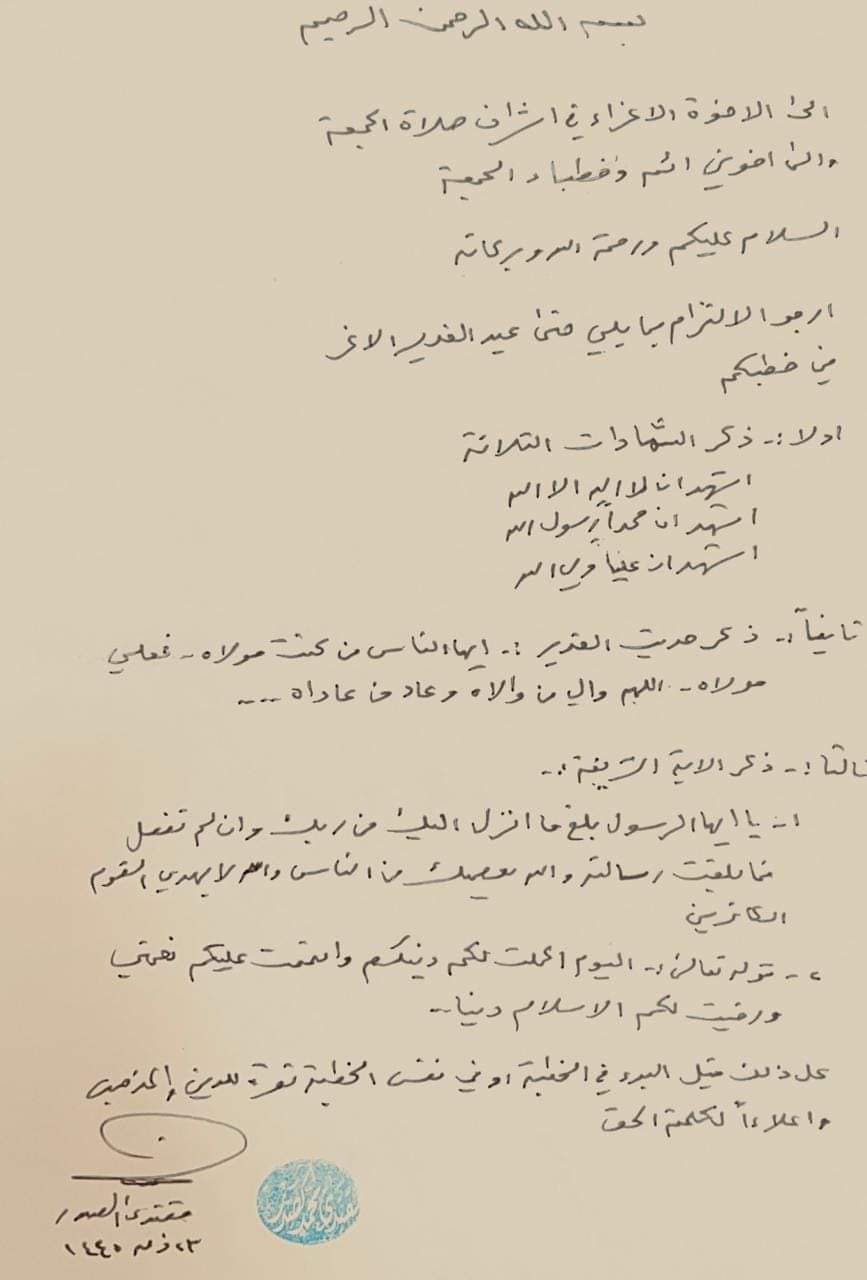 بسم الله الرحمن الرحيم
الى الاخوة الاعزاء في اشراف صلاة الجمعة
والى اخوتي ائمة وخطباء الجمعة
السلام عليكم ورحمة الله وبركاته
ارجو الالتزام بما يلي حتى عيد الغدير الاغر
في خطبكم
اولا :- ذكر الشهادات الثلاثة
اشهد ان لا اله الا الله
اشهد ان محمداً رسول الله
اشهد ان علياً ولي الله
ثانياً :- ذكر حديث الغدير :- ايها الناس من كنت مولاه - فعلي
مولاه - اللهم والِ من والاه وعاد من عاداه ...
ثالثا :- ذكر الاية الشريفة :-
١- يا ايها الرسول بلغ ما انزل اليك من ربك وان لم تفعل
فما بلغت رسالته والله يعصمك من الناس والله لا يهدي القوم
الكافرين
٢- قوله تعالى :- اليوم اكملت لكم دينكم واتممت عليكم نعمتي
ورضيت لكم الاسلام دينا..
كل ذلك قبل البدء في الخطبة او في نفس الخطبة نصرة للدين والمذهب
واعلاءاً لكلمة الحق
مقتدى الصدر
١٤٤٥